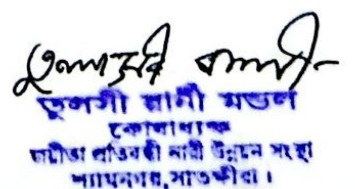 তুলসী রানী মন্ডল
কোষাধ্যক্ষ
প্রতিবন্ধী নারী উন্নয়ন সংস্থা
শ্যামনগর, সাতক্ষীরা।